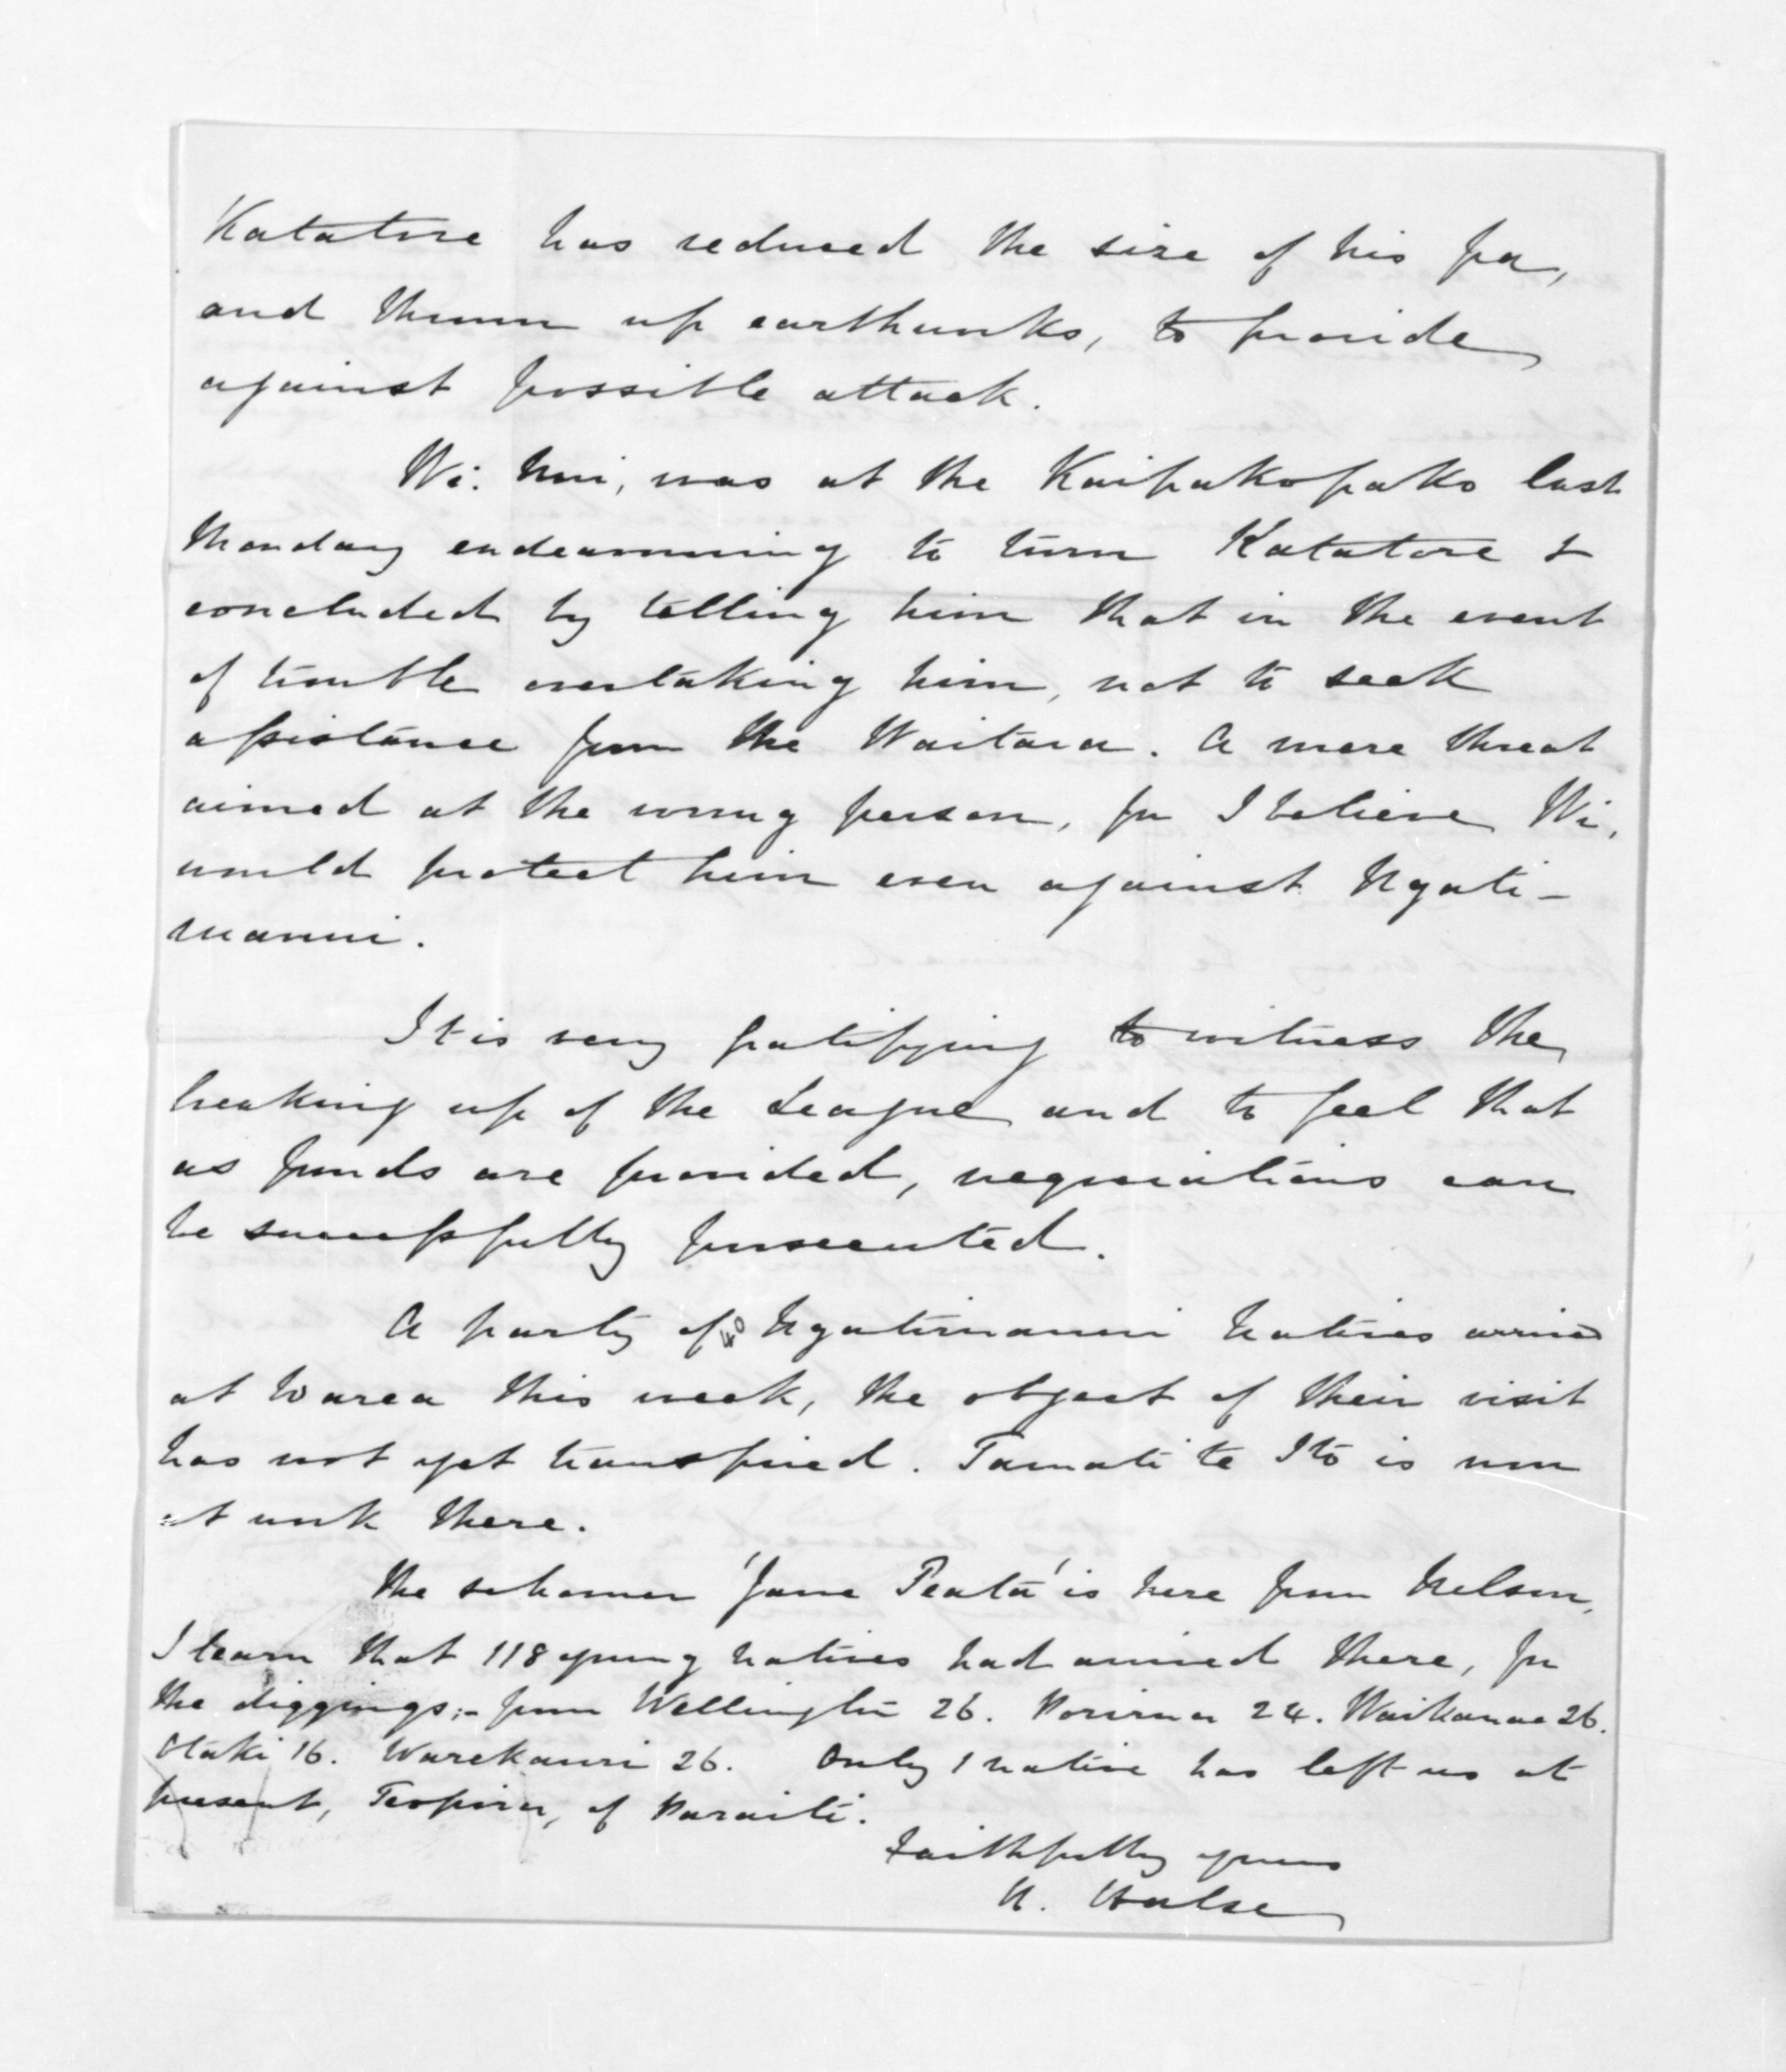 Katatore has reduced the size of his pa,
and thrown up earthworks, to provide
against possible attack.
Wi: was at the Kaipakopako last
Monday endeavouring to turn Katatore &
concluded by telling him that in the event
of trouble overtaking him, not to seek
assistance from the Waitara. A mere threat
aimed at the wrong person, for I believe Wi,
would protect him even against Ngati-
maniu.
It is very gratifying to witness the
breaking up of the League and to feel that
as funds are provided, negociations can
be successfully prosecuted.
A party of 40 Ngatimaniu Natives arrived
at Warea this week, the object of their visit
has not yet transpired. Tamati te Ito is now
at work there.
The schooner 'Jane Peata' is here from Nelson,
I learn that 118 young natives had arrived there, for
the diggings;- from Wellington 26. Porirua 24. Waikanae 26.
Otaki 16. Warekauri 26. Only 1 native has left us at
present, Teopira, of Paraiti.
Faithfully yours
H. Halse